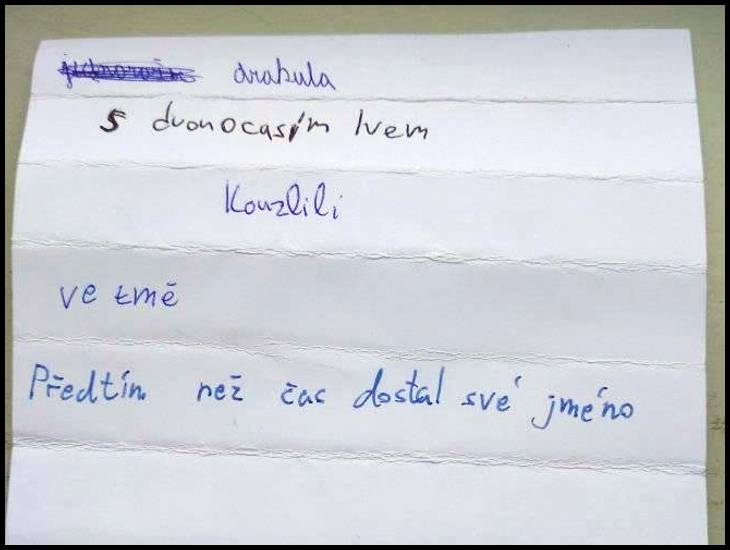 drakula
s dvonocasím lvem
Kouzlili
ve tmě
Předtím než čas dostal své jméno